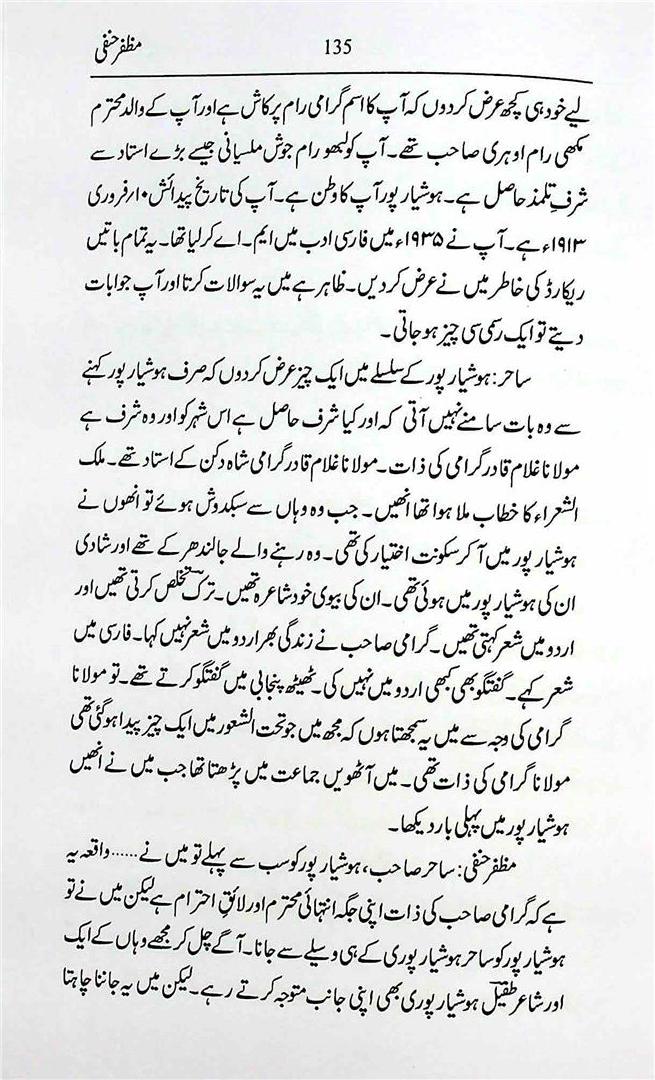 مظفر حنفی 135
لیے خود ہی کچھ عرض کر دوں کہ آپ کا اسم گرامی رام پرکاش ہے اور آپ کے والد محترم
مکھی رام اوہری صاحب تھے۔ آپ کو لبھو رام جوش ملسیانی جیسے بڑے استاد سے
شرفِ تلمذ حاصل ہے۔ ہوشیار پور آپ کا وطن ہے۔ آپ کی تاریخ پیدائش ۱۰؍فروری
۱۹۱۳ء ہے۔ آپ نے ۱۹۳۵ء میں فارسی ادب میں ایم۔ اے کر لیا تھا۔ یہ تمام باتیں
ریکارڈ کی خاطر میں نے عرض کر دیں۔ ظاہر ہے میں یہ سوالات کرتا اور آپ جوابات
دیتے تو ایک رسمی سی چیز ہو جاتی۔
ساحر: ہوشیار پور کے سلسلے میں ایک چیز عرض کر دوں کہ صرف ہوشیار پور کہنے
سے وہ بات سامنے نہیں آتی کہ اور کیا شرف حاصل ہے اس شہر کو اور وہ شرف ہے
مولانا غلام قادر گرامی کی ذات۔ مولانا غلام قادر گرامی شاہ دکن کے استاد تھے۔ ملک
الشعراء کا خطاب ملا ہوا تھا انھیں۔ جب وہ وہاں سے سبکدوش ہوئے تو انھوں نے
ہوشیار پور میں آ کر سکونت اختیار کی تھی۔ وہ رہنے والے جالندھر کے تھے اور شادی
ان کی ہوشیار پور میں ہوئی تھی۔ ان کی بیوی خود شاعرہ تھیں۔ ترک تخلص کرتی تھیں اور
اردو میں شعر کہتی تھیں۔ گرامی صاحب نے زندگی بھر اردو میں شعر نہیں کہا۔ فارسی میں
شعر کہے۔ گفتگو بھی کبھی اردو میں نہیں کی۔ ٹھیٹھ پنجابی میں گفتگو کرتے تھے۔ تو مولانا
گرامی کی وجہ سے میں یہ سمجھتا ہوں کہ مجھ میں جو تحت الشعور میں ایک چیز پیدا ہو گئی تھی
مولانا گرامی کی ذات تھی۔ میں آٹھویں جماعت میں پڑھتا تھا جب میں نے انھیں
ہوشیار پور میں پہلی بار دیکھا۔
مظفر حنفی: ساحر صاحب، ہوشیار پور کو سب سے پہلے تو میں نے ...... واقعہ یہ
ہے کہ گرامی صاحب کی ذات اپنی جگہ انتہائی محترم اور لائقِ احترام ہے لیکن میں نے تو
ہوشیار پور کو ساحر ہوشیار پوری کے ہی وسیلے سے جانا۔ آگے چل کر مجھے وہاں کے ایک
اور شاعر طفیل ہوشیار پوری بھی اپنی جانب متوجہ کرتے رہے۔ لیکن میں یہ جاننا چاہتا